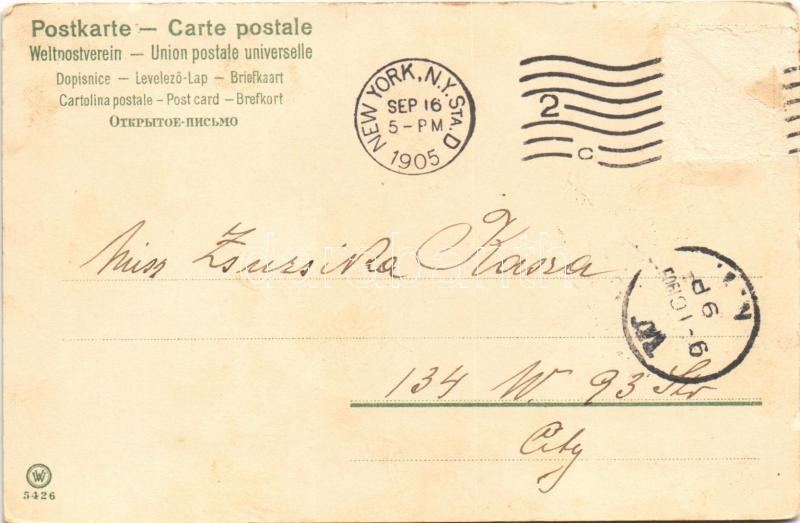 Postkarte — Carte postale
Weltpostverein — Union postale universelle
Dopisnice — Levelező-Lap — Briefkaart
Cartolina postale – Post card – Brefkort
Открытое-письмо
NEW YORK, N.Y. STA. D
SEP 16
5-PM
1905
2
C
Miss Zsuzsika Kassa
134 W. 93 Str
City
9 P
W
5426